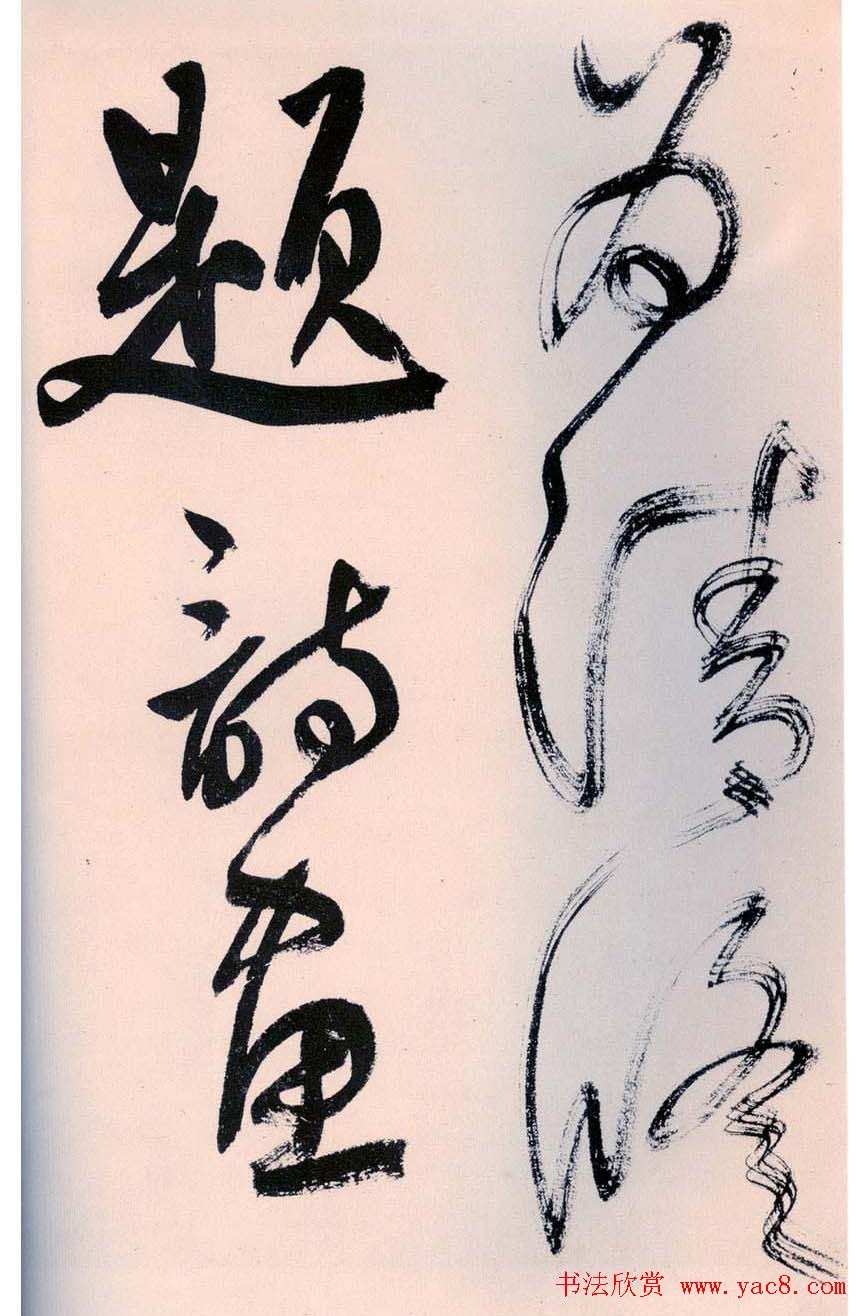 為清修
題詩畫
书法欣赏 www.yac8.com